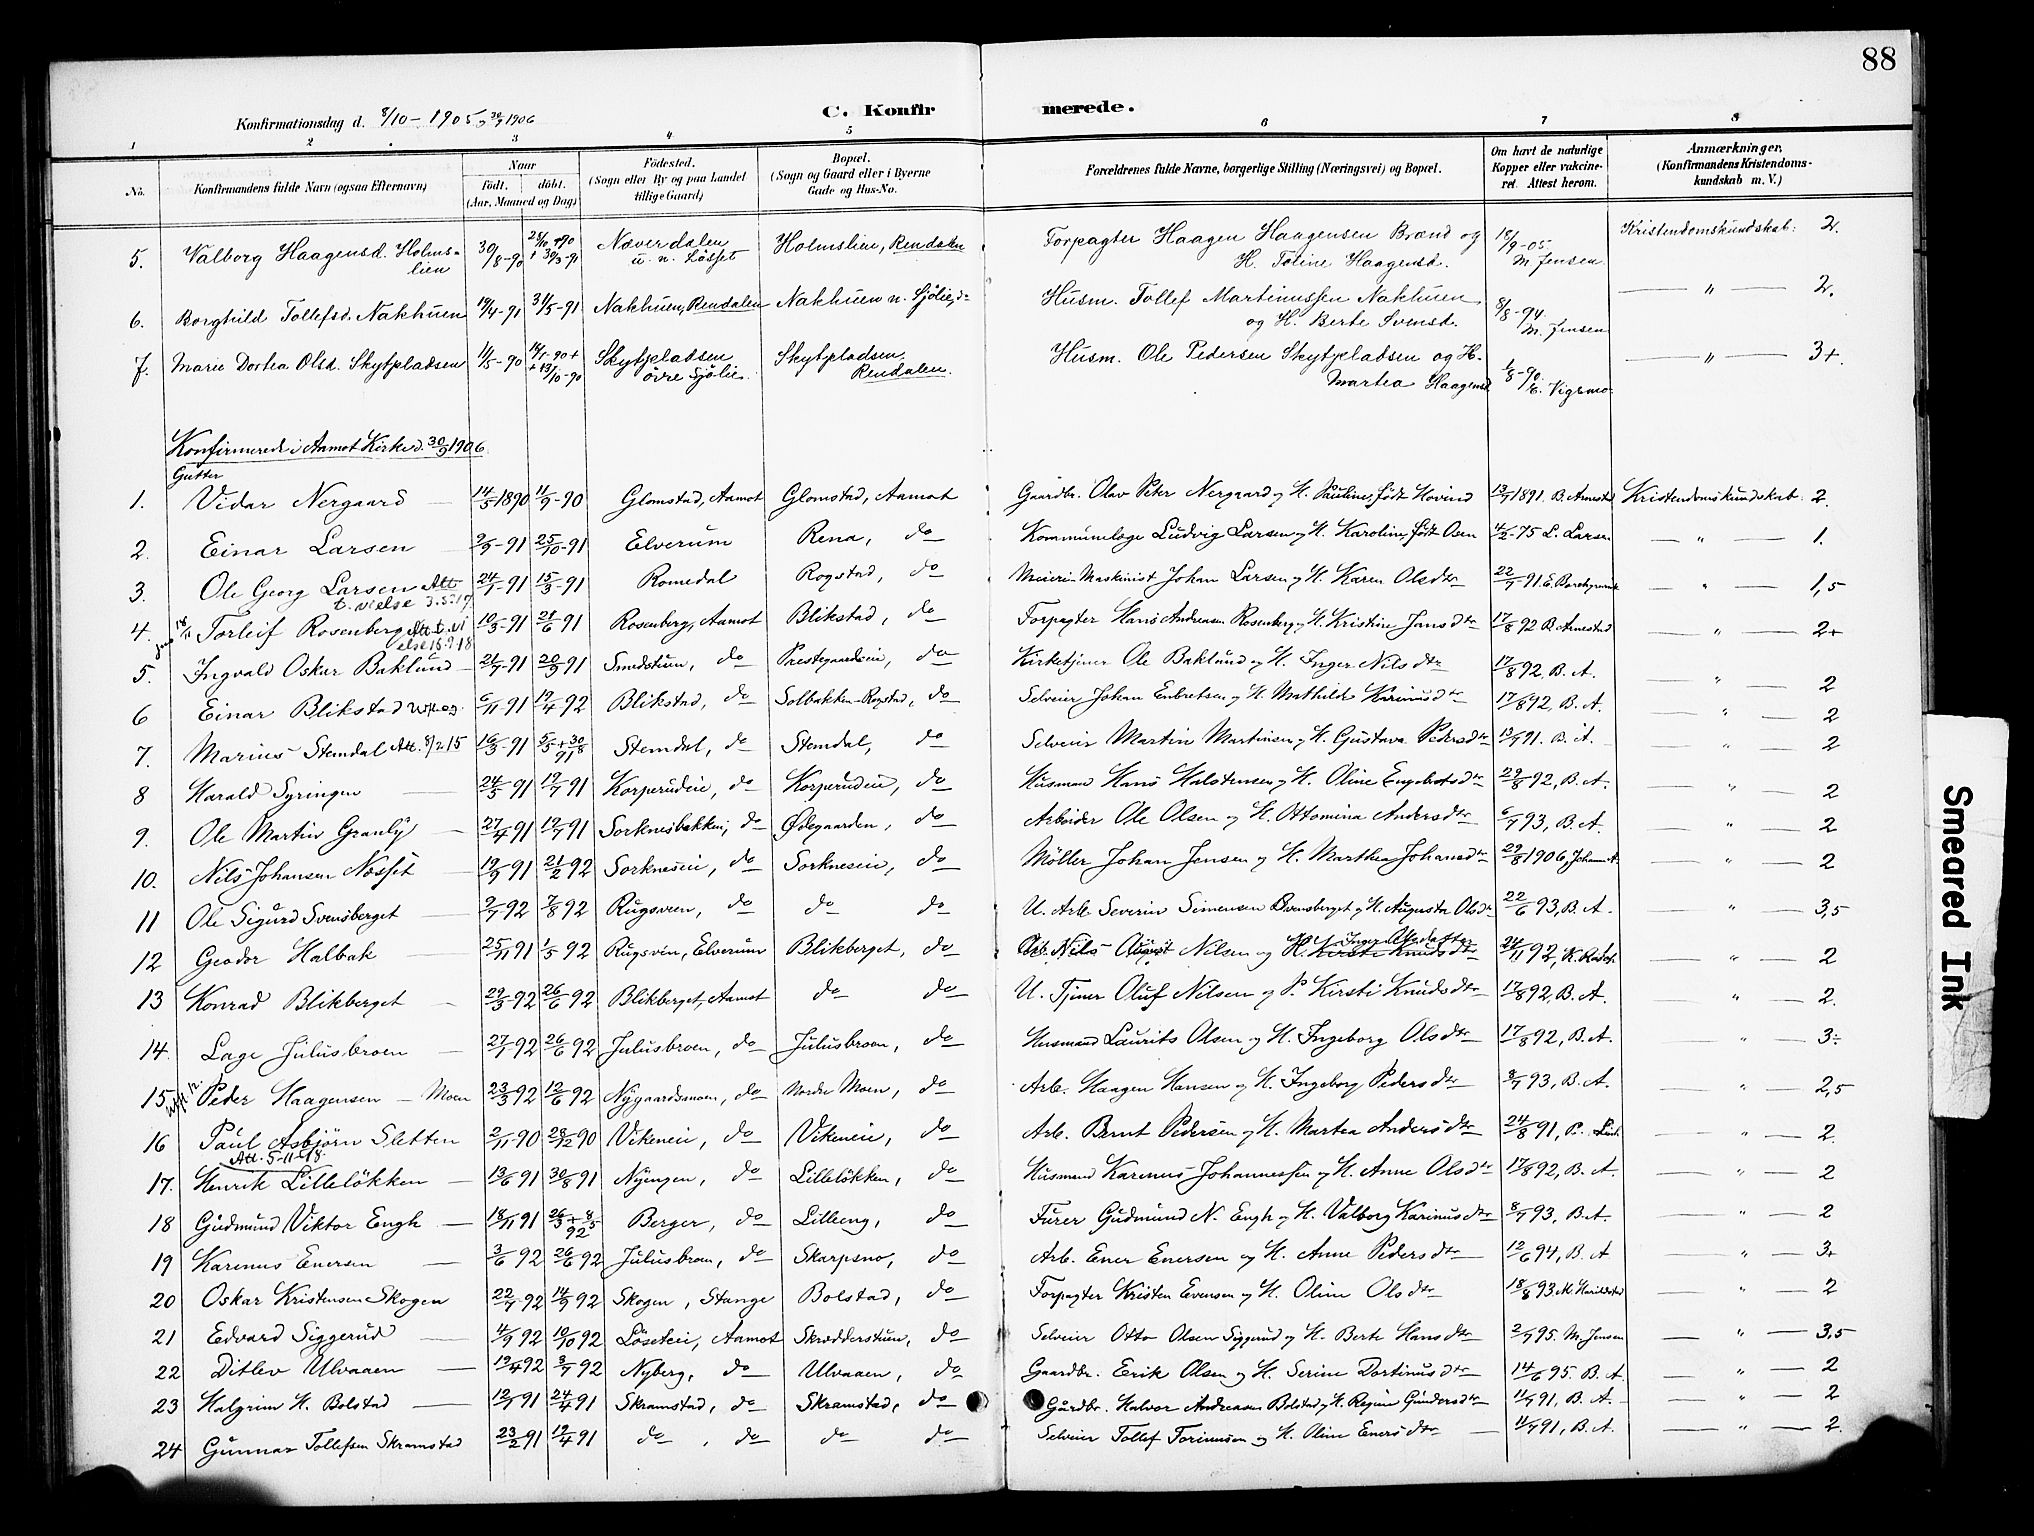 88
Konfirmationsdag d. 8/10 - 1905, 30/9 1906
C. Konfirmerede.
1 2 3 4 5 6 7 8
No. Konfirmandens fulde Navn (ogsaa Efternavn) Naar Født. døbt. (Aar, Maaned og Dag) Fødested. (Sogn eller By og paa Landet tillige Gaard) Bopæl. (Sogn og Gaard eller i Byerne Gade og Hus-No. Forældrenes fulde Navne, borgerlige Stilling (Næringsvei) og Bopæl. Om havt de naturlige Kopper eller vakcineret. Attest herom. Anmærkninger, (Konfirmandens Kristendomskundskab m. V.)
5. Valborg Haagensd. Holmslien 30/8-90 Næverdalen Holmslien, Rendalen Forpagter Haagen Haagensen Brænd og H. Toline Haagensd. 18/9-05. M. Jensen Kristendomskundskab: 2.
6. Borghild Tollefsd. Nakhuen 19/4-91 31/5-91 Nakhuen, Rendalen Nakhuen n. Sjølie, do Husm. Tollef Martinussen Nakhuen og H. Berte Svensd. 8/8-94. M. Jensen — " — 2.
7. Marie Dortea Olsd. Skytpladsen 11/5-90 Skytpladsen øvre Sjølie Skytpladsen Rendalen. Husm. Ole Pedersen Skytpladsen og H. Martea Haagensd. 1/8-90. E. Vigsmo — " — 3+.
Konfirmerede i Aamot Kirke d. 30/9 1906
Gutter
1. Vidar Nergaard — 14/5 1890 11/9-90 Glomstad, Aamot Glomstad, Aamot Gaardbr. Olav Peter Nergaard og H. Pauline, født Hovind 13/7 1891. B. Arnestad Kristendomskundskab: 2.
2. Einar Larsen 2/9-91 25/10-91 Elverum Rena, do Kommunelæge Ludvig Larsen og H. Karoline, født Osen 4/2-75 L. Larsen — " — 1.
3. Ole Georg Larsen Att. t. vielse 3.5.17 24/1-91 15/3-91 Romedal Rogstad, do Meieri-Maskinist Johan Larsen og H. Karen Olsdtr 22/7-91 — " — 1,5
4. Torleif Rosenberg Att. t. vielse 18.9.18 10/3-91 21/6 91 Rosenberg, Aamot Blikstad, do Forpagter Hans Andreasen Rosenberg og H. Kristine Jansdtr 17/8 92 B. Arnestad — " — 2+
5. Ingvald Oskar Baklund — 21/7-91 20/9 91 Smedstuen, do Prestegaardseie, do Kirketjener Ole Baklund og H. Inger Nilsdtr 17/8 92, B. A. — " — 2
6 Einar Blikstad 6/11 91 19/4-92 Blikstad, do Solbakken-Rogstad, do Selveier Johan Enbretsen og H. Mathilde Karinusdtr 17/8 92, B. A. — " — 2
7. Marius Stemdal Att. 8/2.15 16/3-91 5/5 + 30/8 91 Stemdal, do Stemdal, do Selveier Martin Martinsen og H. Gustava Pedersdtr 13/7 91. B. A. — " — 2
8 Harald Syringen — 24/5 91 19/7 91 Korperudeie, do Korperudeie, do Husmand Hans Halstensen og H. Oline Engebretsdtr 29/8 92, B. A. — " — 2
9. Ole Martin Granly — 27/4 91 19/7 91 Sorknesbakken, do Ødegaarden, do Arbeider Ole Olsen og H. Ottomina Andersdtr 6/7 93, B. A. — " — 2
10. Nils Johansen Næsset — 19/9 91 21/2 92 Sorkneseie, do Sorkneseie, do Møller Johan Jensen og H. Marthea Johansdtr 29/8 1906, — " — 2
11 Ole Sigurd Svensberget — 2/7 92 7/8 92 Rugsveen, do do do U. Arb. Severin Simensen Svensberget og H. Augusta Olsdtr 22/6 93, B. A. — " — 3,5
12 Geodor Halbak — 25/11 91 1/5 92 Rugsvén, Elverum Blikberget, do Arb. Nils August Nilsen og H. Kirsti Knudsdtr 24/11 92, — " — 2
13 Konrad Blikberget — 29/3-92 26/6 92 Blikberget, Aamot do do U. Tjener Oluf Nilsen og P. Kirsti Knudsdtr 17/8 92, B. A. — " — 2.
14. Lage Julusbroen — 27/1-92 26/6 92 Julusbroen, do Julusbroen, do Husmand Laurits Olsen og H. Ingeborg Olsdtr 17/8 92, B. A. — " — 3÷
15 Peder Haagensen — Moen 23/3 92 12/6 92 Nygaardsmoen, do Nordre Moen, do Arb. Haagen Hansen og H. Ingeborg Pedersdtr 8/7 93, B. A. — " — 2,5
16 Paul Asbjørn Sletten Att. 5-11-18. 2/11-90 28/12 90 Vikeneie, do Vikeneie, do Arb. Bernt Pedersen og H. Martea Andersdtr 24/8 91, — " — 2.
17. Henrik Lilleløkken — 13/6 91 30/8 91 Nyengen, do Lilleløkken, do Husmand Karenus Johannessen og H. Anne Olsdtr 17/8 92, B. A. — " — 2
18 Gudmund Viktor Engh — 18/11 91 26/3 + 8/5 92 Berger, do Lilleeng, do Furer Gudmund N. Engh og H. Valborg Karinusdtr 8/7 93, B. A. — " — 2
19 Karenus Enersen — 3/6 92 26/6 92 Julusbroen, do Skarpsno, do Arb. Ener Enersen og H. Anne Pedersdtr 12/6 94, B. A — " — 3+
20 Oskar Kristensen Skogen 22/7-92 14/9 92 Skogen, Stange Bolstad, do Forpagter Kristen Evensen og H. Oline Olsdtr 18/8 93 — " — 2
21 Edvard Siggerud — 4/9 92 10/10 92 Løseteie, Aamot Skrædderstuen, do Selveier Otto Olsen Siggerud og H. Berte Hansdtr 2/7 95. M. Jensen — " — 3,5
22 Ditlev Ulvaaen — 19/4 92 3/7 92 Nyberg, do Ulvaaen, do Gaardbr. Erik Olsen og H. Serine Dortinusdtr 14/6 95. B. A. — " — 2
23 Halgrim H. Bolstad — 12/1 91 24/4 91 Skramstad, do Skramstad, do Gardbr. Halvor Andreasen Bolstad og H. Regine Gundersdtr 11/7 91, B. A. — " — 2
24 Gunnar Tollefsen Skramstad 23/2 91 19/4 91 do, do do do Selveier Tollef Torinusen og H. Oline Enersdtr — 11/7 91, B. A. — " — 2.
Smeared Ink